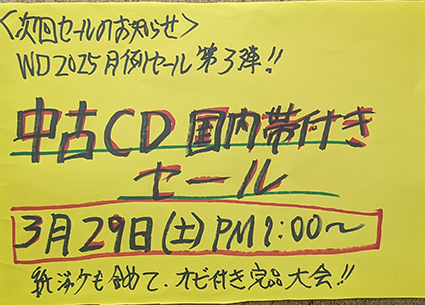 <次回セールのお知らせ>
WD2025月例セール第3弾!!
中古CD国内帯付き
セール
3月29日(土)PM1:00〜
紙ジャケも含めて、オビ付き完品大会!!